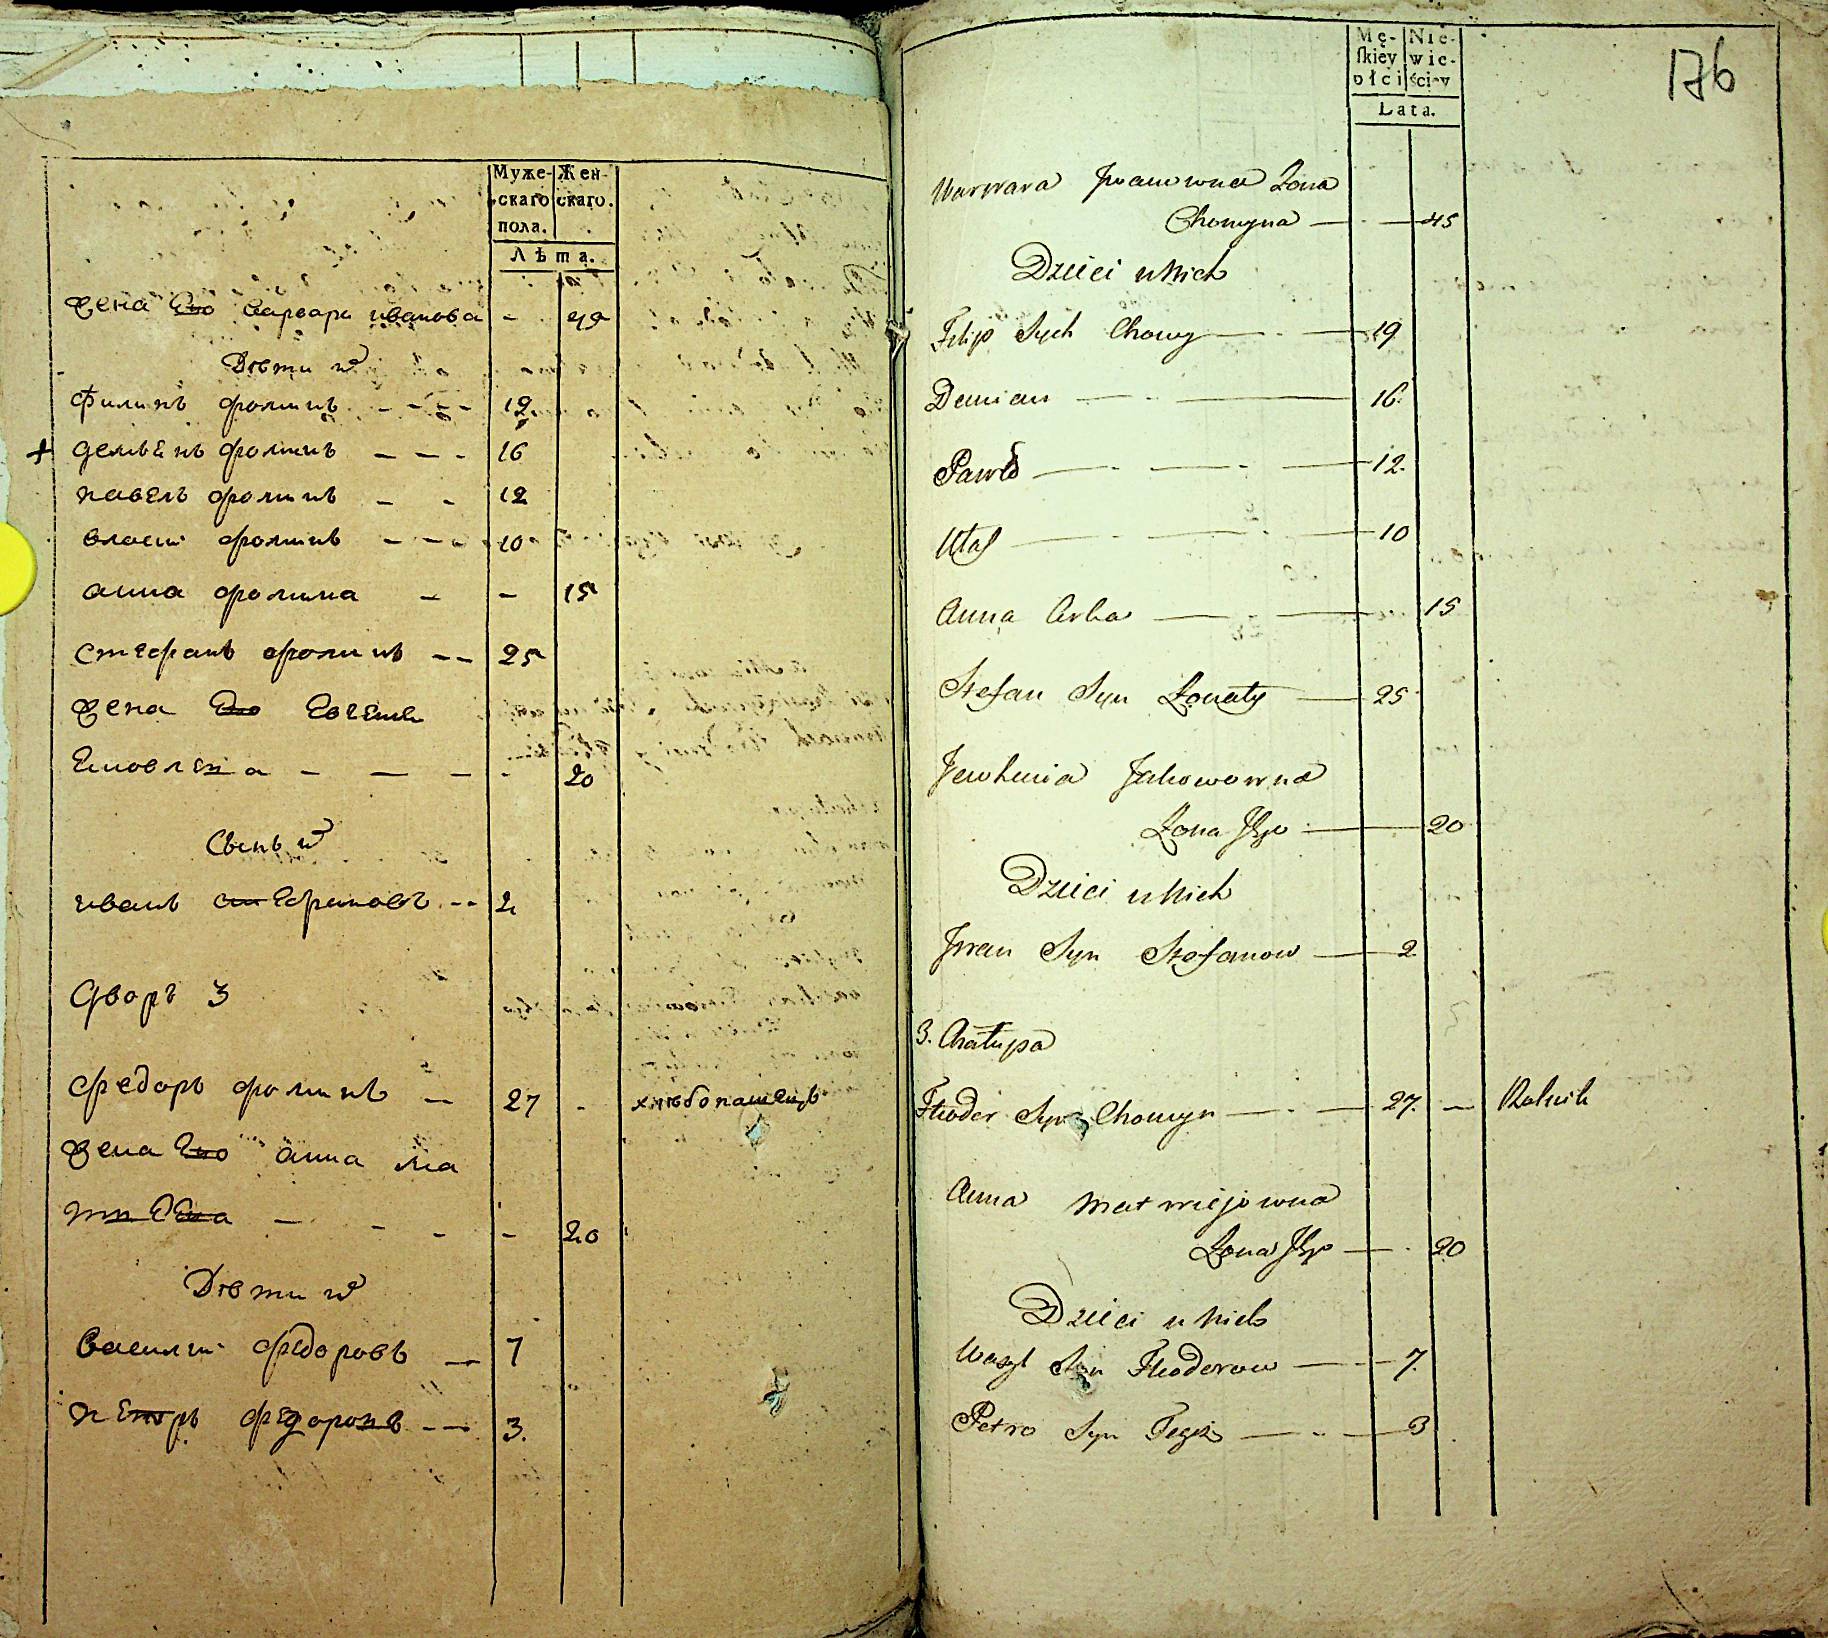 Муже-
скаго
пола.
Жен-
скаго.
Лѣта.
жена Его варвара иванова - 45
Дѣти их
филипъ фоминъ - - - - 19
+ демьѣнъ фоминъ - - - 16
павелъ фоминъ - - 12
власъ фоминъ - - 10
анна фомина - - 15
стефанъ фоминъ - - 25
жена Его Евгения
Емовлена - - - - 20
Сынъ их
иванъ стефановъ - - 2
Дворъ 3
федоръ фоминъ - 27 - хлѣбопашецъ
жена Его анна ма
твѣева - - - - 20
Дѣти их
Василий федоровъ - 7
петръ федоровъ - - 3.
176
Mę-
skiey
płci
Nie-
wie-
ściey
Lata.
Warwara Jwanowna Zona
Chomyna - 45
Dzieci u Nich
Filip Syn Chomy - 19
Demian - 16.
Pawło - 12.
Ułas - 10
Anna Corka - 15
Stefan Syn Zonaty - 25
Jewhenia Jakowowna
Zona Jego - 20
Dzieci u Nich
Jwan Syn Stefanow - 2
3. Chałupa
Fteodor Syn Chomyn - 27. - Rolnik
Anna Matwiejowna
Zona Jego - 20
Dzieci u Nich
Wasyl Syn Fteodorow - 7.
Petro Syn Tegoż - 3